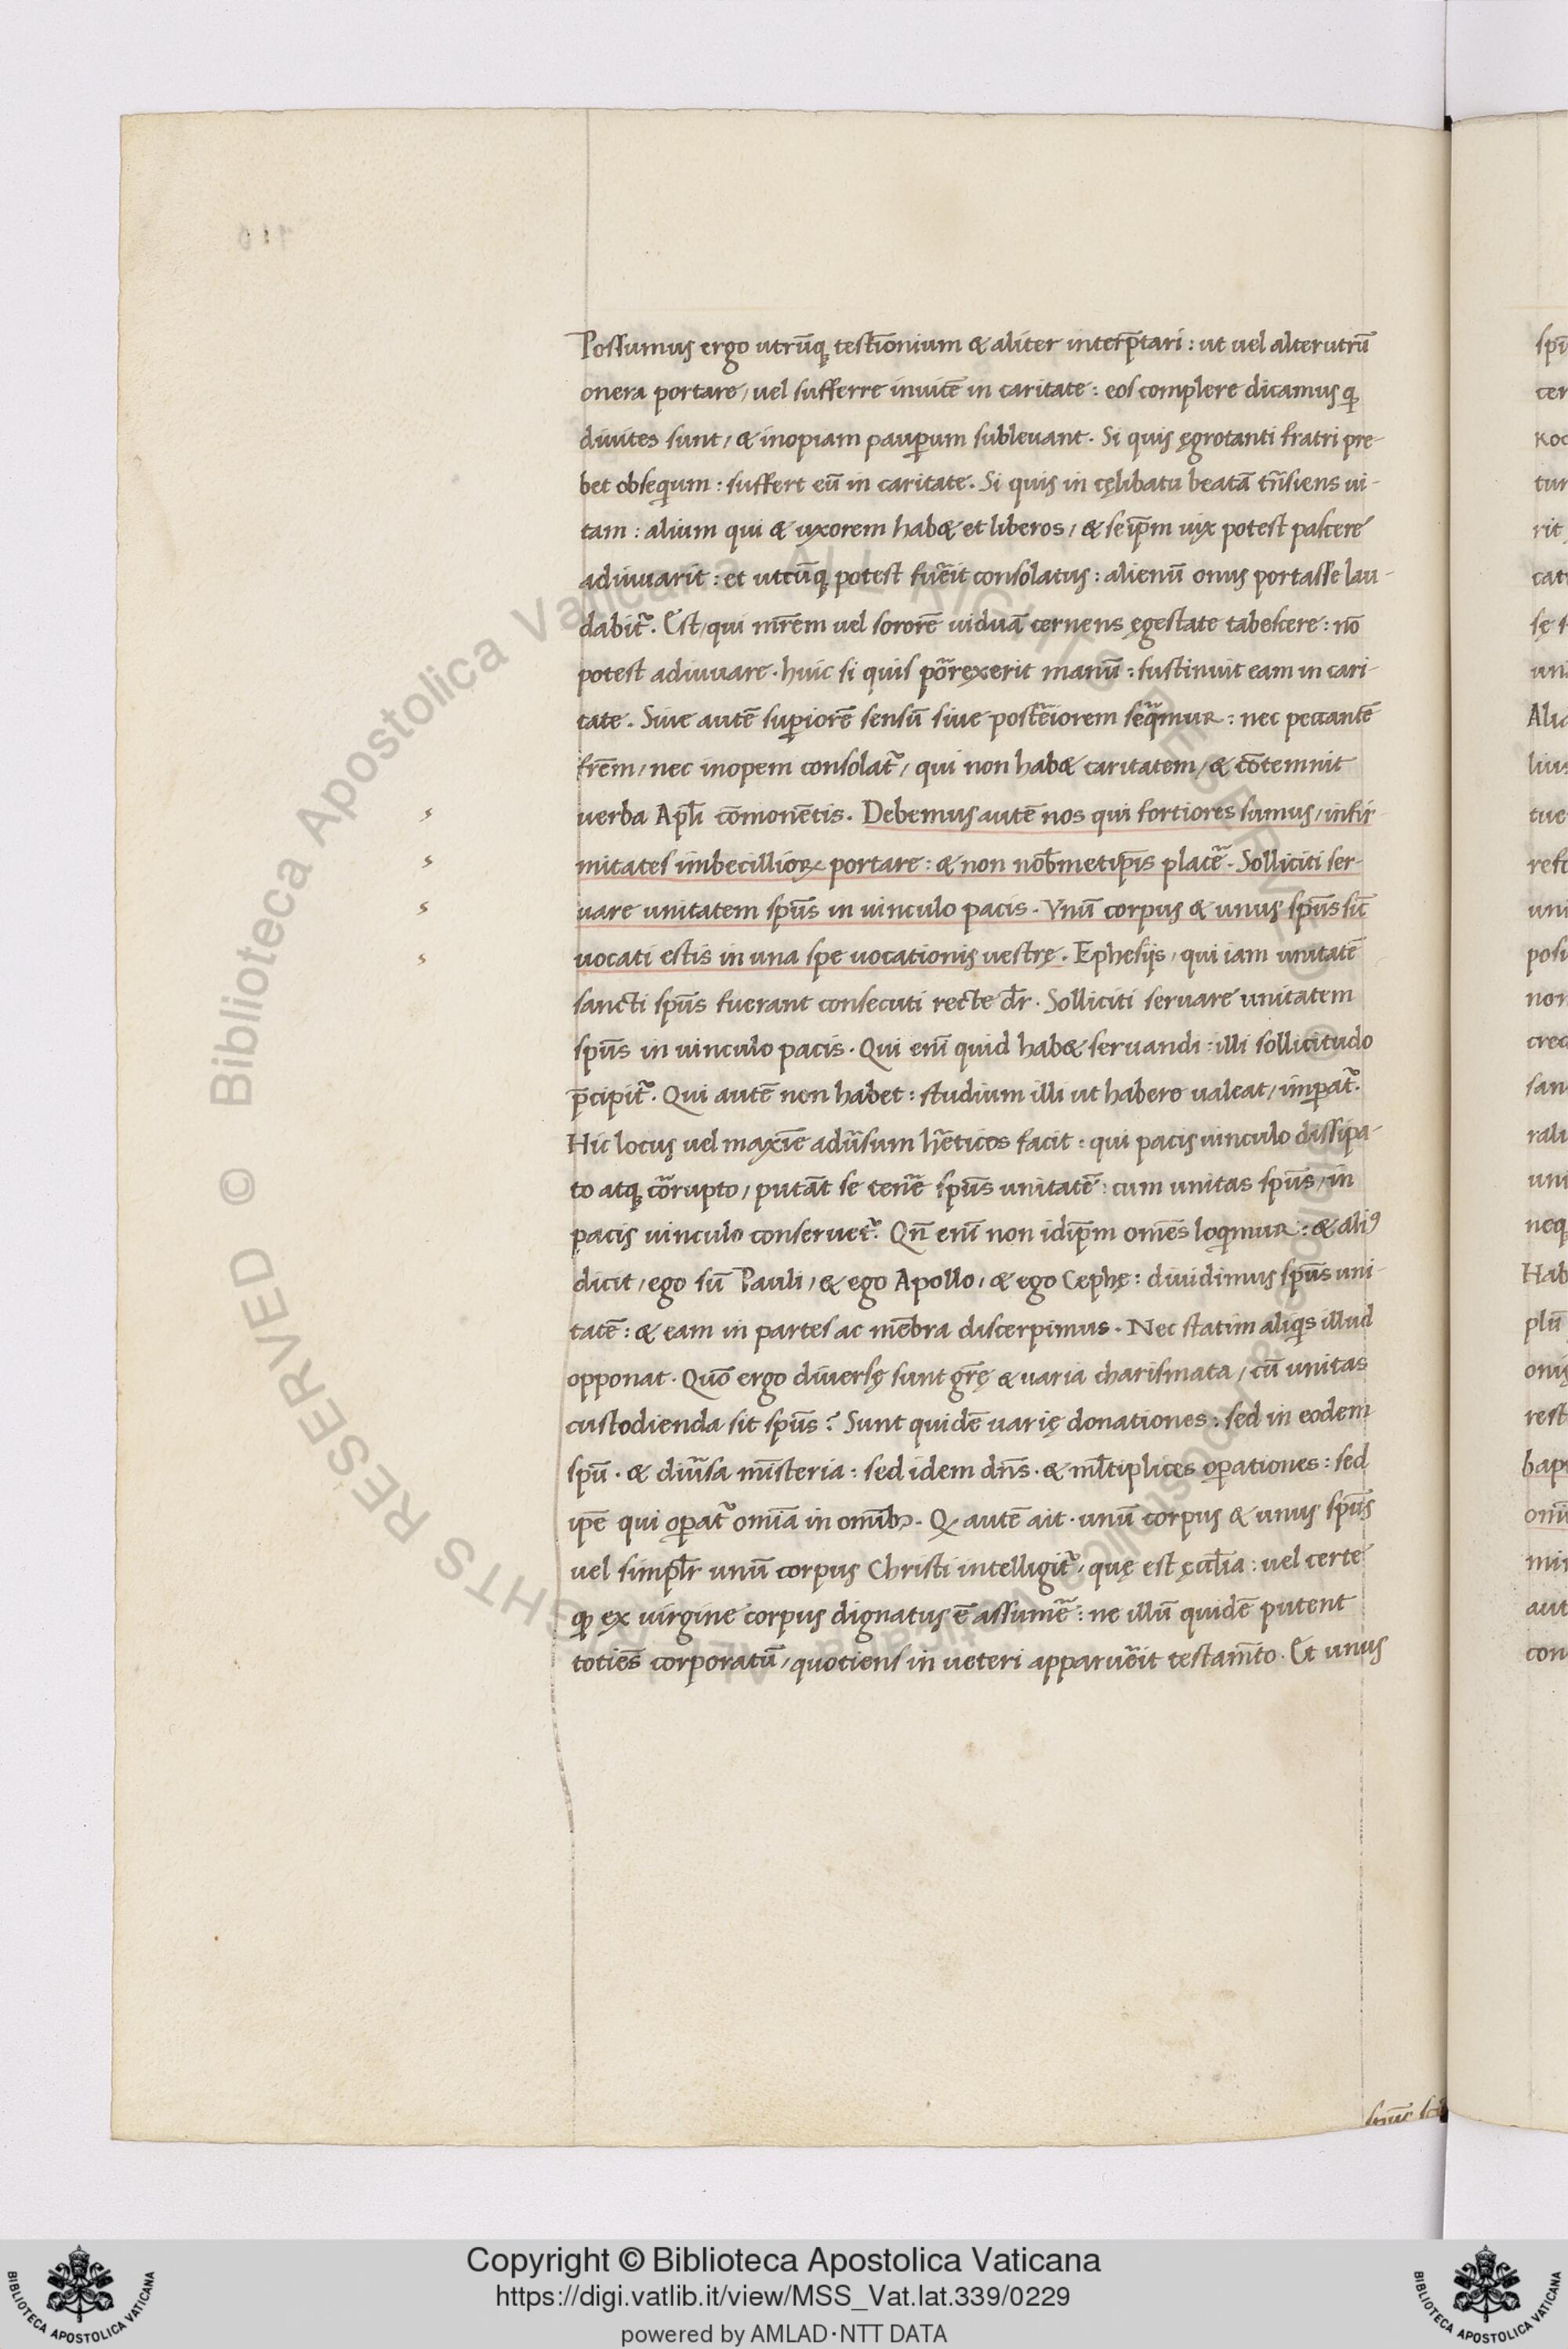 Possumus ergo utrūq; testīonium & aliter interp̄tari: ut uel alterutrū
onera portare, uel sufferre inuicē in caritate: eos complere dicamus q
diuites sunt, & inopiam paup̱um subleuant. Si quis ęgrotanti fratri pre-
bet obseq̇um: suffert eū in caritate. Si quis in cęlibatu beatā tr̄nsiens ui-
tam: alium qui & uxorem hab& et liberos, & seip̄m uix potest pascere
adiuuarit: et utcūq; potest fuēit consolatus: alienū onus portasse lau-
dabit᷑. Est, qui mr̄em uel sororē uiduā cernens ęgestate tabescere: nō
potest adiuuare. huic si quis por̄rexerit manū: sustinuit eam in cari-
tate. Siue autē sup̱iorē sensū siue postēiorem seq̄mur: nec peccantē
fr̄em, nec inopem consolat᷑, qui non hab& caritatem, & cōtemnit
uerba Apl̄i cōmonētis. Debemus autē nos qui fortiores sumus, infir-
mitates imbecillioꝝ portare: & non nob̄metip̄is placē. Solliciti ser-
uare unitatem sp̄us in uinculo pacis. Vnū corpus & unus sp̄us sic̄
uocati estis in una spe uocationis uestrę. Ephesijs, qui iam unitatē
sancti sp̄us fuerant consecuti recte dr̄. Solliciti seruare unitatem
sp̄us in uinculo pacis. Qui enī quid hab& seruandi: illi sollicitudo
p̄cipit᷑. Qui autē non habet: studium illi ut habere ualeat, imp̱at᷑.
Hic locus uel maxīe adūsum hēticos facit: qui pacis uinculo dissipa-
to atq; cōrupto, putāt se tenē sp̄us unitatē: cum unitas sp̄us, in
pacis uinculo conseruet᷑. Qn̄ enī non idip̄m omēs loq̇mur: & aliꝰ
dicit, ego sū Pauli, & ego Apollo, & ego Cephę: diuidimus sp̄us uni-
tatē: & eam in partes ac mēbra discerpimus. Nec statim aliq̇s illud
opponat. Quō ergo diuersę sunt gr̄ę & uaria charismata, cū unitas
custodienda sit sp̄us? Sunt quidē uarię donationes: sed in eodem
sp̄u. & diūsa mīsteria: sed idem dn̄s. & ml̄tiplices op̱ationes: sed
ip̄e qui op̱at᷑ omīa in omīb;. Q autē ait. unū corpus & unus sp̄us
uel simpl̄r unū corpus Christi intelligit᷑, quę est ęccl̄ia: uel certe
q ex uirgine corpus dignatus ē assumē: ne illū quidē putent
totiēs corporatū, quotiens in ueteri apparuēit testam̄to. Et unus
Copyright © Biblioteca Apostolica Vaticana
https://digi.vatlib.it/view/MSS_Vat.lat.339/0229
powered by AMLAD·NTT DATA
BIBLIOTECA APOSTOLICA VATICANA
BIBLIOTECA APOSTOLICA VATICANA
© Biblioteca Apostolica Vaticana ALL RIGHTS RESERVED